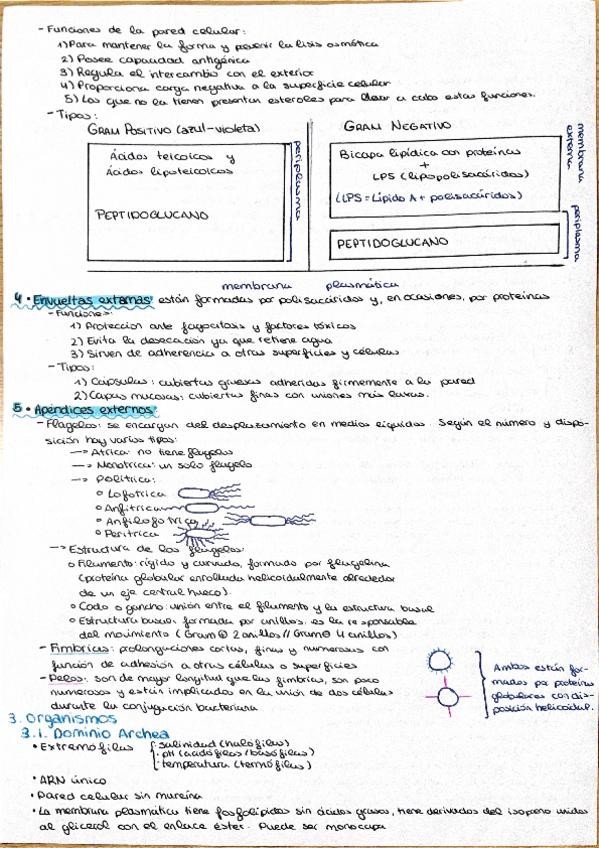 - Funciones de la pared celular:
1) Para mantener la forma y prevenir la lisis osmótica
2) Posee capacidad antigénica
3) Regula el intercambio con el exterior
4) Proporciona carga negativa a la superficie celular
5) Los que no la tienen presentan esteroles para llevar a cabo estas funciones.
- Tipos:
GRAM POSITIVO (azul-violeta)
Ácidos teicoicos y
Ácidos lipoteicoicos
PEPTIDOGLUCANO
periplasma
GRAM NEGATIVO
Bicapa lipídica con proteínas
+
LPS (lipopolisacáridos)
(LPS = Lípido A + polisacáridos)
membrana externa
PEPTIDOGLUCANO
periplasma
membrana plasmática
4 • Envueltas externas: están formadas por polisacáridos y, en ocasiones, por proteínas
- Funciones:
1) Protección ante fagocitosis y factores tóxicos
2) Evita la desecación ya que retiene agua
3) Sirven de adherencia a otras superficies y células
- Tipos:
1) Cápsulas: cubiertas gruesas adheridas firmemente a la pared
2) Capas mucosas: cubiertas finas con uniones más laxas.
5 • Apéndices externos:
- Flagelos: se encargan del desplazamiento en medios líquidos. Según el número y dispo-
sición hay varios tipos:
—> Atrica: no tiene flagelos
—> Monotrica: un solo flagelo
—> Politrica:
o Lofotrica
o Anfitrica
o Anfilofotrica
o Peritrica
—> Estructura de los flagelos:
o Filamento: rígido y curvado, formado por flagelina
(proteína globular enrollada helicoidalmente alrededor
de un eje central hueco).
o Codo o gancho: unión entre el filamento y la estructura basal
o Estructura basal: formada por anillos. es la responsable
del movimiento (Gram⊕ 2 anillos // Gram⊖ 4 anillos)
- Fimbrias: prolongaciones cortas, finas y numerosas con
función de adhesión a otras células o superficies
- Pelos: son de mayor longitud que las fimbrias, son poco
numerosos y están implicados en la unión de dos células
durante la conjugación bacteriana
Ambos están for-
mados por proteínas
globulares con dis-
posición helicoidal.
3. Organismos
3.1. Dominio Archea
• Extremófilas
· salinidad (halófilas)
· pH (acidófilas/basófilas)
· temperatura (termófilas)
• ARN único
• Pared celular sin mureína
• La membrana plasmática tiene fosfolípidos sin ácidos grasos, tiene derivados del isopreno unidos
al glicerol con el enlace éster. Puede ser monocapa